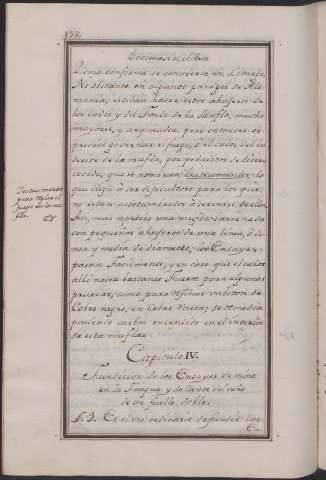 138.
Docimasia, el Arte
como conforme se convierte en
No obstante en algunos parages de Ale-
mania, usan hacer estos ahujeros de
los lados y del fondo de la Mufla, mucho
mayores, y arqueados, pero entonces es
preciso governar el fuego, y el calor del in-
terior de la mufla, por pedazos de tierra
cocida, que se nombran Instrumentos: lo
que llega à ser dificultoso para los que
no estan acostumbrados à servirse de ellos.
Assi, mas aprecio una mufla barrenada
con pequeños ahujeros de una linea, ò de li-
nea y media de diametro; los Ensayes
pasan facilmente; y en caso que el calor
alli no sea bastante fuerte para algunas
pruevas, como para refinar un boton de
Cobre negro, en Cobre Roseta; se remedia
poniendo carbon encendido en el interior
de esta mufla.
Instrumentos
para regir el
fuego en la mu-
fla.
Capitulo IV.
Fundicion de los Ensayes de mina
en la Fragua y delante del caño
de un fuelle doble.
§. I. Es el uso ordinario de fundir los